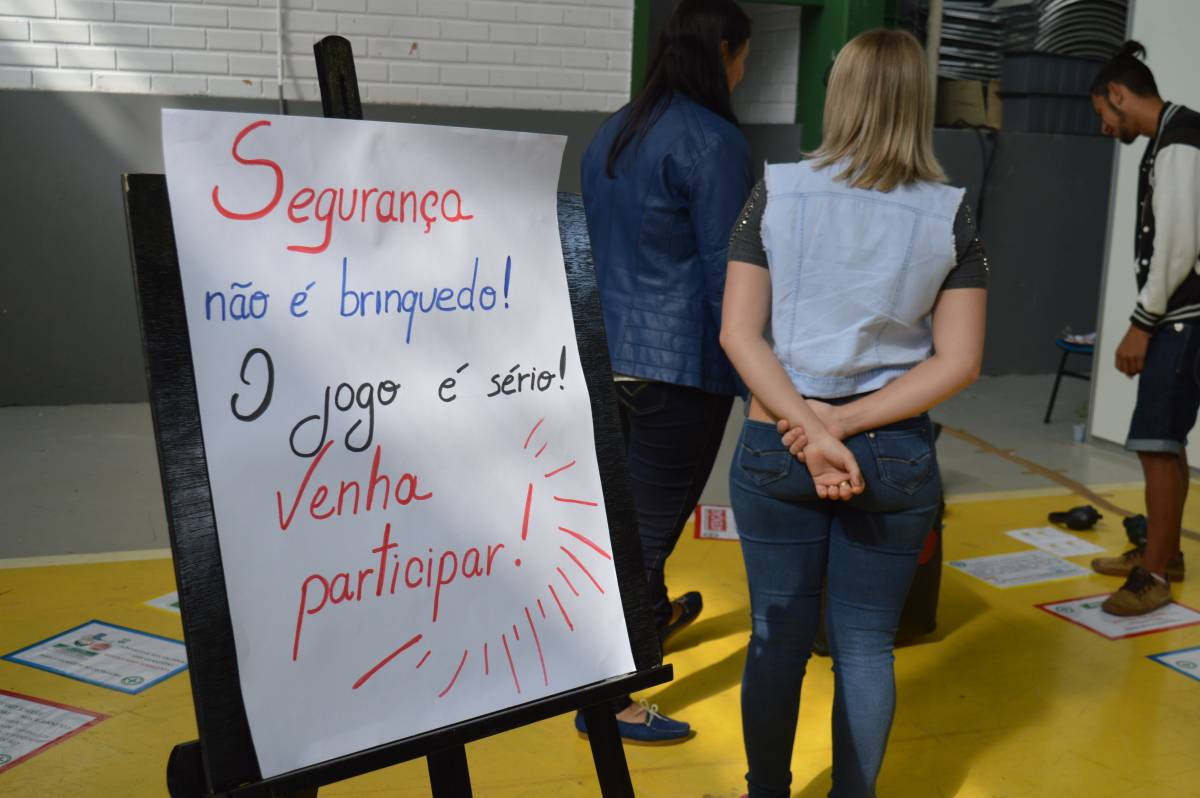 Segurança
não é brinquedo!
O jogo é sério!
Venha
participar!